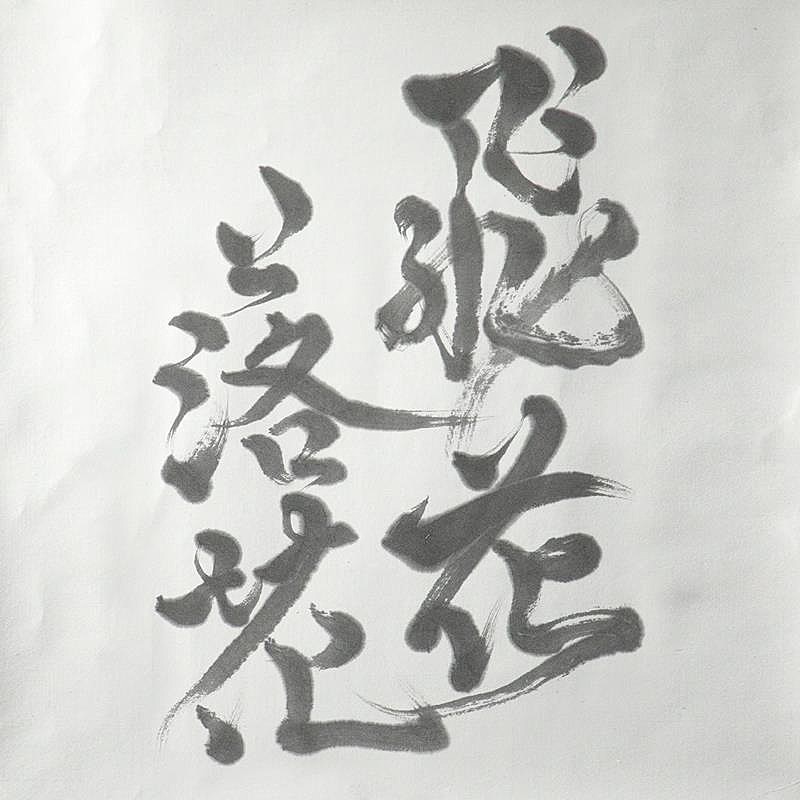 飛花
落花